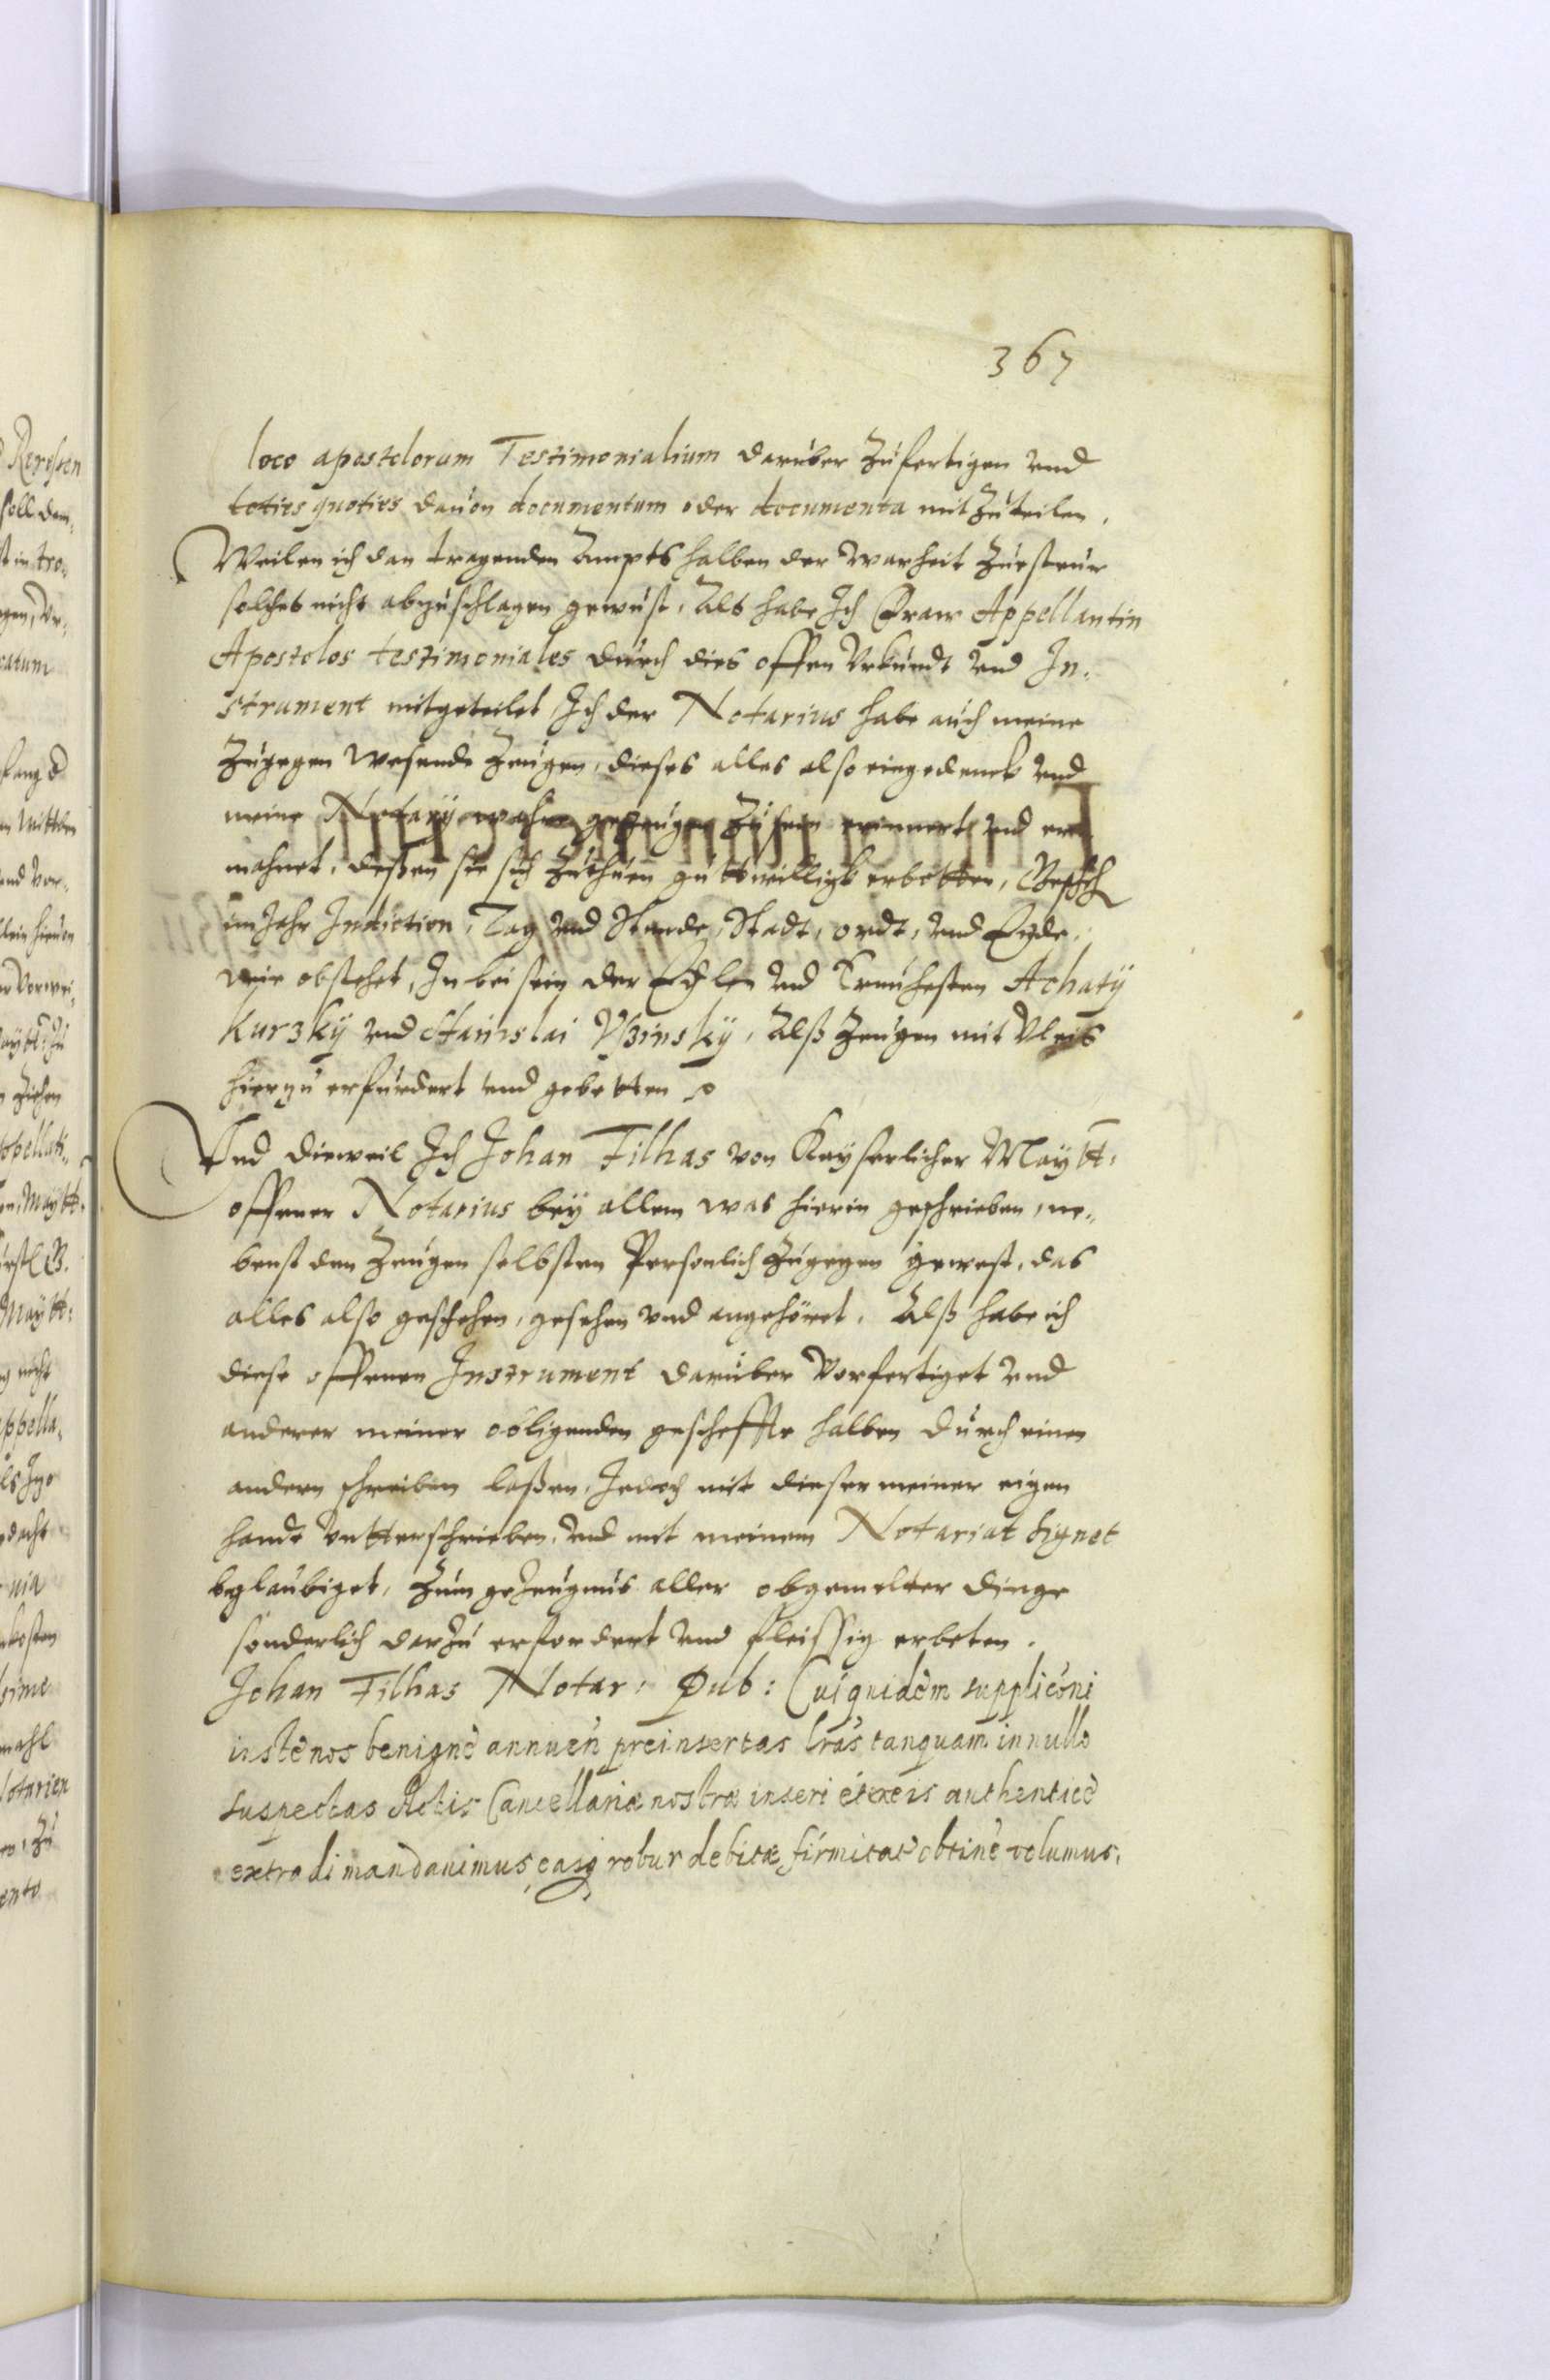 367
loco apostolorum Testimonialium darüber Zufertigen vnd
toties quoties dauon documentum oder documenta mit Zuteilen,
Weilen ich dan tragenden Ampts halben der warheit Zuesteur
solches nicht abzuschlagen gewust, Als habe Ich Fraw Appellantin
Apostolos testimoniales durch dies offen Vrkundt vnd In-
strument mitgeteilet Ich der Notarius habe auch meine
Zugegen wesende Zeugen, dieses alles also eingedenck vnd
meine Notarÿ wahre gezeugen Zusein erinnert vnd er-
mahnet, deßen sie sich Zuthuen guttwilligk erbotten,
im Jahr Indiction, Tag vnd Stunde, Stadt, ordt, vnd Ende,
wie obstehet, In beisein der Edlen vnd Ernuhesten Achatÿ
Kurzkÿ vnd Stanislai Vßinskÿ, Alß Zeugen mit Vleis
hierzu erfurdert vnd gebetten
Vnd dieweil Ich Johan Filhas von Kayserlicher Maytt:
offener Notarius beÿ allem was hierin geschrieben, ne-
benst den Zeugen selbsten Personlich Zugegen gewest, das
alles also geschehen, gesehen vnd angehöret, Alß habe ich
diese offenen Instrument darüber Vorfertiget vnd
anderer meiner obligenden gescheffte halben durch einen
andern schreiben laßen, Jedoch mit dieser meiner eigen
handt Vntterschrieben, vnd mit meinem Notariat Signet
beglaubiget, Zum geZeugnus aller obgemelter dinge
sonderlich darZu erfordert vnd fleissig erbeten.
Johan Filhas Notar: Pub: Cui quidem suppliconi
iustè nos benignè annuen preinsertas lras tanquam in nullo
suspectas Actis Cancellariæ nostræ inseri et ex eis authenticè
extradi mandauimus, easq robur debitæ firmitat obtine volumus.